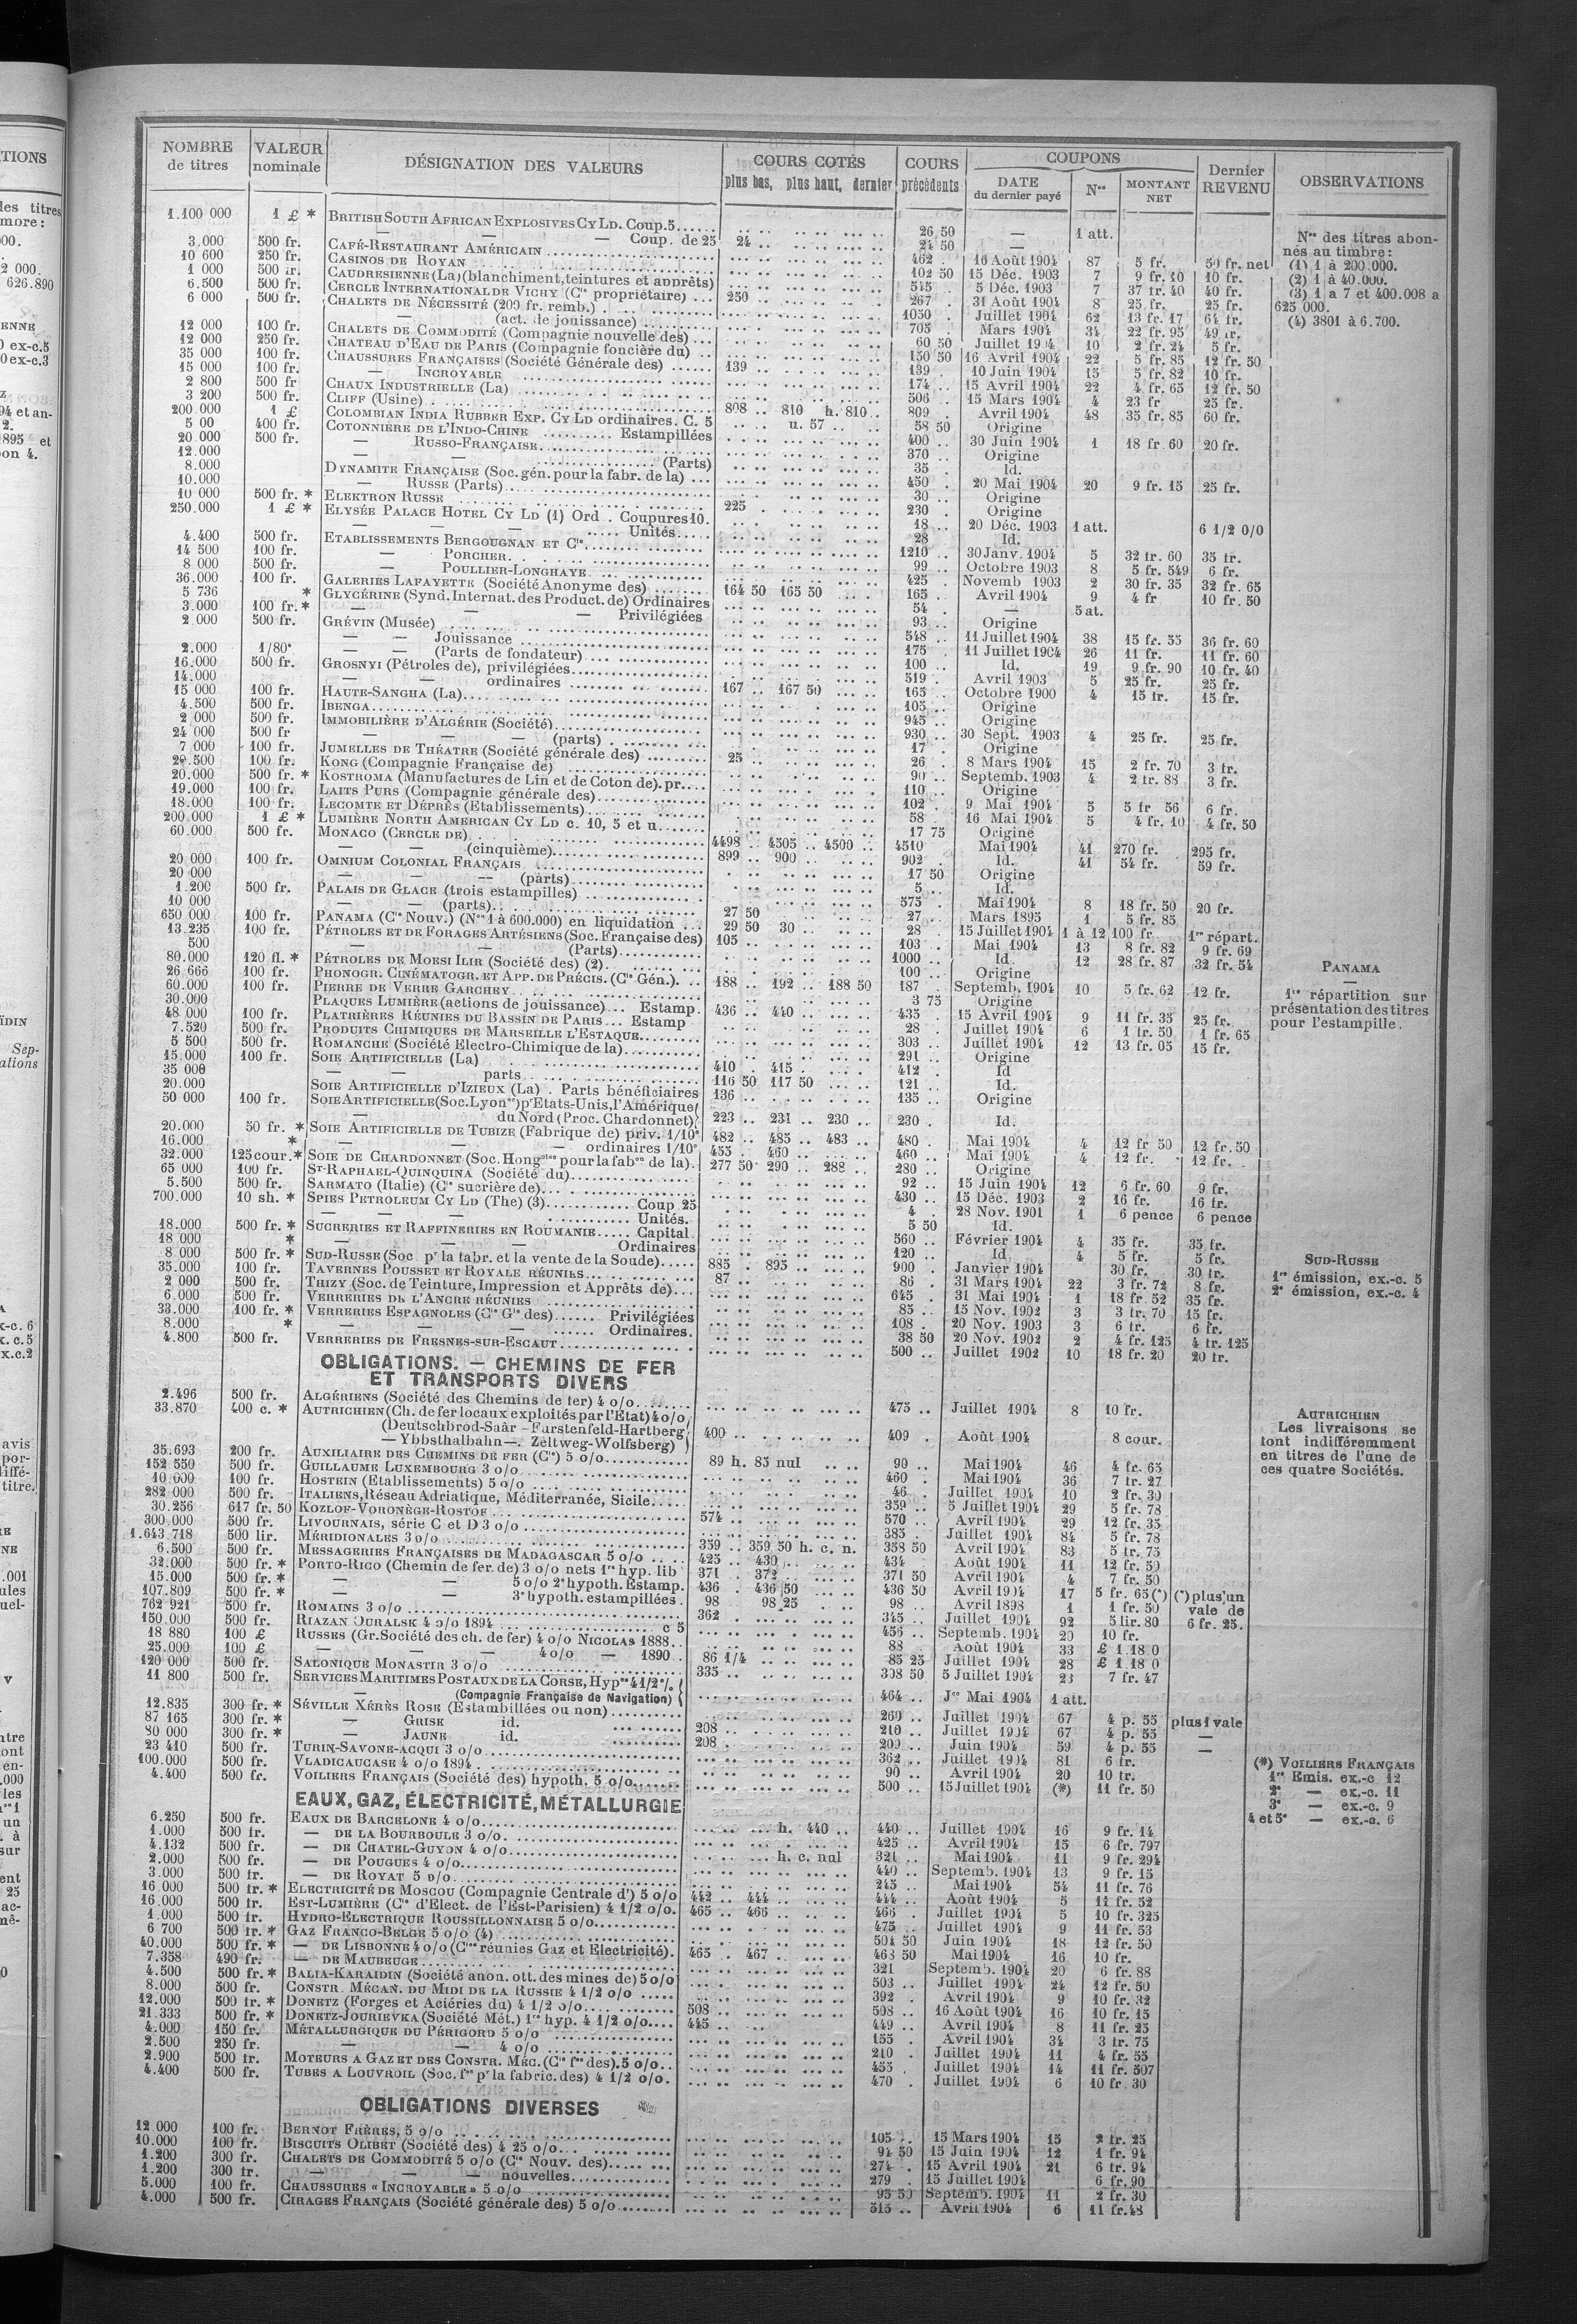 NOMBRE de titres | VALEUR nominale | DÉSIGNATION DES VALEURS | COURS COTÉS plus bas, plus haut, dernier | COURS précédents | COUPONS DATE du dernier payé | Nos | MONTANT NET | Dernier REVENU | OBSERVATIONS
1.100 000 1 £ * BRITISH SOUTH AFRICAN EXPLOSIVES CY LD. Coup. 5 26 50 — 1 att.
— — — Coup. de 25 24 .. 24 50 —
3.000 500 fr. CAFÉ-RESTAURANT AMÉRICAIN 462 . 16 Août 1904 87 5 fr. 50 fr. net
10 600 250 fr. CASINOS DE ROYAN 102 50 15 Déc. 1903 7 9 fr. 10 10 fr.
1 000 500 fr. CAUDRESIENNE (La) (blanchiment, teintures et apprêts) 545 .. 5 Déc. 1903 7 37 fr. 40 40 fr.
6.500 500 fr. CERCLE INTERNATIONAL DE VICHY (Cie propriétaire) 250 .. 267 31 Août 1904 8 25 fr. 25 fr.
6 000 500 fr. CHALETS DE NÉCESSITÉ (200 fr. remb.) 1050 . Juillet 1904 62 13 fr. 17
— (act. de jouissance) 705 Mars 1904 34 22 fr. 95
12 000 100 fr. CHALETS DE COMMODITÉ (Compagnie nouvelle des) 60 50 10 2 fr. 24 5 fr.
12 000 250 fr. CHATEAU D'EAU DE PARIS (Compagnie foncière du) 150 50 16 Avril 1904 22 5 fr. 85 12 fr. 50
35 000 100 fr. CHAUSSURES FRANÇAISES (Société Générale des) 139 .. 139 . 10 Juin 1904 15 5 fr. 82 10 fr.
15 000 100 fr. — INCROYABLE 174 .. 15 Avril 1904 22 4 fr. 65 12 fr. 50
2 800 500 fr CHAUX INDUSTRIELLE (La) 506 .. 15 Mars 1904 4 23 fr 25 fr.
3 200 500 fr. CLIFF (Usine) 808 .. 810 h. 810 .. 809 . Avril 1904 48 35 fr. 85 60 fr.
200.000 1 £ COLOMBIAN INDIA RUBBER EXP. CY LD ordinaires. C. 5 u. 57 .. 58 50 Origine
5 00 400 fr. COTONNIÈRE DE L'INDO-CHINE Estampillées 400 .. 30 Juin 1904 1 18 fr. 60 20 fr.
20.000 500 fr. — RUSSO-FRANÇAISE 370 .. Origine
12.000 — (Parts) 35 . Id.
8.000 DYNAMITE FRANÇAISE (Soc. gén. pour la fabr. de la) 450 . 20 Mai 1904 20 9 fr. 15 25 fr.
10.000 — RUSSE (Parts) 30 .. Origine
10 000 500 fr. * ELEKTRON RUSSE 225 230 . Origine
250.000 1 £ * ELYSÉE PALACE HOTEL CY LD (1) Ord. Coupures 10. 18 .. 20 Déc. 1903 1 att. 6 1/2 0/0
— — — Unités 28 Id.
4.400 500 fr. ETABLISSEMENTS BERGOUGNAN ET Cie 1210 .. 30 Janv. 1904 5 32 fr. 60 35 fr.
14 500 100 fr. — PORCHER 99 .. Octobre 1903 8 5 fr. 549 6 fr.
8 000 500 fr. — POULLIER-LONGHAYE 425 . Novemb 1903 2 30 fr. 35 32 fr. 65
36.000 100 fr. GALERIES LAFAYETTE (Société Anonyme des) 164 50 165 50 165 . Avril 1904 9 4 fr 10 fr. 50
5 736 * GLYCÉRINE (Synd. Internat. des Product. de) Ordinaires 54 . — 5 at.
3.000 100 fr. * — — — Privilégiées 93 .. Origine
2.000 500 fr. GRÉVIN (Musée) 548 .. 11 Juillet 1904 38 15 fr. 55 36 fr. 60
— — Jouissance 175 . 11 Juillet 1904 26 11 fr. 11 fr. 60
2.000 1/80e — — (Parts de fondateur) 100 .. Id. 19 9 fr. 90 10 fr. 40
16.000 500 fr. GROSNYI (Pétroles de), privilégiées 519 . Avril 1903 5 25 fr. 25 fr.
14.000 — — ordinaires 167 .. 167 50 165 . Octobre 1900 4 15 fr. 15 fr.
15 000 100 fr. HAUTE-SANGHA (La) 105 .. Origine
4.500 500 fr. IBENGA 945 .. Origine
2 000 500 fr. IMMOBILIÈRE D'ALGÉRIE (Société) 930 .. 30 Sept. 1903 4 25 fr. 25 fr.
24 000 500 fr — — — (parts) 17 . Origine
7 000 100 fr. JUMELLES DE THÉATRE (Société générale des) 25 .. 26 . 8 Mars 1904 15 2 fr. 70 3 fr.
500 100 fr. KONG (Compagnie Française de) 90 .. Septemb. 1903 4 2 fr. 88 3 fr.
20.000 500 fr. * KOSTROMA (Manufactures de Lin et de Coton de). pr. 110 .. Origine
19.000 100 fr. LAITS PURS (Compagnie générale des) 102 . 9 Mai 1904 5 5 fr 56 6 fr.
18.000 100 fr. LECOMTE ET DÉPRÈS (Etablissements) 58 . 16 Mai 1904 5 4 fr. 10 4 fr. 50
200.000 1 £ * LUMIÈRE NORTH AMERICAN CY LD c. 10, 5 et u. 17 75 Origine
60.000 500 fr. MONACO (CERCLE DE) 4498 .. 4505 .. 4500 .. 4510 Mai 1904 41 270 fr. 295 fr.
— — (cinquième) 899 .. 900 .. 902 . Id. 41 54 fr. 59 fr.
20 000 100 fr. OMNIUM COLONIAL FRANÇAIS 17 50 Origine
20 000 — — — (parts) 5 .. Id.
1.200 500 fr. PALAIS DE GLACE (trois estampilles) 575 . Mai 1904 8 18 fr. 50 20 fr.
10 000 — — (parts) 27 50 27 .. Mars 1895 1 5 fr. 85
650 000 100 fr. PANAMA (Cie Nouv.) (Nos 1 à 600.000) en liquidation 29 50 30 .. 28 . 15 Juillet 1904 1 à 12 100 fr 1re répart.
13.235 100 fr. PÉTROLES ET DE FORAGES ARTÉSIENS (Soc. Française des) 105 .. 103 . Mai 1904 13 8 fr. 82 9 fr. 69
500 — — (Parts) 1000 .. Id. 12 28 fr. 87 32 fr. 54
80.000 120 fl. * PÉTROLES DE MOESI ILIR (Société des) (2) 100 .. Origine
26 666 100 fr. PHONOGR. CINÉMATOGR. ET APP. DE PRÉCIS. (Cie Gén.) 188 .. 192 .. 188 50 187 . Septemb. 1904 10 5 fr. 62 12 fr.
60.000 100 fr. PIERRE DE VERRE GARCHEY 3 75 Origine
30.000 PLAQUES LUMIÈRE (actions de jouissance) Estamp. 436 .. 440 .. 435 . 15 Avril 1904 9 11 fr. 35 25 fr.
48 000 100 fr. PLATRIÈRES RÉUNIES DU BASSIN DE PARIS Estamp 28 . Juillet 1904 6 1 fr. 50 1 fr. 65
7.520 500 fr. PRODUITS CHIMIQUES DE MARSEILLE L'ESTAQUE 303 .. Juillet 1904 12 13 fr. 05 15 fr.
5 500 500 fr. ROMANCHE (Société Electro-Chimique de la) 291 .. Origine
15.000 100 fr. SOIE ARTIFICIELLE (La) 410 . 415 . 412 . Id
35 000 — — parts 116 50 117 50 121 . Id.
20.000 SOIE ARTIFICIELLE D'IZIEUX (La) . Parts bénéficiaires 136 .. 135 .. Origine
50 000 100 fr. SOIE ARTIFICIELLE (Soc. Lyonse) pr Etats-Unis, l'Amérique
— du Nord (Proc. Chardonnet) 223 .. 231 .. 230 .. 230 . Id.
20.000 50 fr. * SOIE ARTIFICIELLE DE TUBIZE (Fabrique de) priv. 1/10e 482 .. 485 .. 483 .. 480 . Mai 1904 4 12 fr 50 12 fr. 50
16.000 * — — — ordinaires 1/10e 455 . 460 .. 460 .. Mai 1904 4 12 fr. 12 fr.
32.000 125 cour. * SOIE DE CHARDONNET (Soc. Hongroise pour la fabon de la) 277 50 290 .. 288 .. 280 .. Origine
65 000 100 fr. ST-RAPHAEL-QUINQUINA (Société du) 92 .. 15 Juin 1904 12 6 fr. 60 9 fr.
5.500 500 fr. SARMATO (Italie) (Cie sucrière de) 430 .. 15 Déc. 1903 2 16 fr. 16 fr.
700.000 10 sh. * SPIES PETROLEUM CY LD (The) (3) Coup 25 4 . 28 Nov. 1901 1 6 pence 6 pence
— — — Unités. 5 50 Id.
18.000 500 fr. * SUCRERIES ET RAFFINERIES EN ROUMANIE Capital 560 .. Février 1904 4 35 fr. 35 fr.
18 000 * — — Ordinaires 120 .. Id 4 5 fr. 5 fr.
8 000 500 fr. * SUD-RUSSE (Soc pr la fabr. et la vente de la Soude) 885 . 895 .. 900 . Janvier 1904 30 fr. 30 fr.
35.000 100 fr. TAVERNES POUSSET ET ROYALE RÉUNIES 87 .. 86 . 31 Mars 1904 22 3 fr. 72 8 fr.
2 000 500 fr. THIZY (Soc. de Teinture, Impression et Apprêts de) 645 . 31 Mai 1904 1 18 fr. 52 35 fr.
6.000 500 fr. VERRERIES DE L'ANCRE RÉUNIES 85 . 15 Nov. 1902 3 3 fr. 70 15 fr.
33.000 100 fr. * VERRERIES ESPAGNOLES (Cie Gle des) Privilégiées 108 . 20 Nov. 1903 3 6 fr. 6 fr.
8.000 * — — Ordinaires. 38 50 20 Nov. 1902 2 4 fr. 125 4 fr. 125
4.800 500 fr. VERRERIES DE FRESNES-SUR-ESCAUT 500 .. Juillet 1902 10 18 fr. 20 20 fr.
OBLIGATIONS. — CHEMINS DE FER
ET TRANSPORTS DIVERS
2.496 500 fr. ALGÉRIENS (Société des Chemins de fer) 4 o/o 475 .. Juillet 1904 8 10 fr.
33.870 400 c. * AUTRICHIEN (Ch. de fer locaux exploités par l'Etat) 4 o/o
(Deutschbrod-Saâr — Furstenfeld-Hartberg
— Ybbsthalbahn —. Zeltweg-Wolfsberg) 400 .. 409 . Août 1904 8 cour.
35.693 200 fr. AUXILIAIRE DES CHEMINS DE FER (Cie) 5 o/o
152 550 500 fr. GUILLAUME LUXEMBOURG 3 o/o 89 h. 85 nul 90 .. Mai 1904 46 4 fr. 65
10.000 100 fr. HOSTEIN (Etablissements) 5 o/o 460 . Mai 1904 36 7 fr. 27
282 000 500 fr. ITALIENS, Réseau Adriatique, Méditerranée, Sicile 46 . Juillet 1904 10 2 fr. 30
30.256 617 fr. 50 KOZLOF-VORONÈGE-ROSTOF 359 .. 5 Juillet 1904 29 5 fr. 78
300 000 500 fr. LIVOURNAIS, série C et D 3 o/o 574 .. 570 .. Avril 1904 29 12 fr. 35
1.643 718 500 lir. MÉRIDIONALES 3 o/o 385 . Juillet 1904 84 5 fr. 78
6.500 500 fr. MESSAGERIES FRANÇAISES DE MADAGASCAR 5 o/o 359 .. 359 50 h. c. n. 358 50 Avril 1904 83 5 fr. 75
32.000 500 fr. * PORTO-RICO (Chemin de fer de) 3 o/o nets 1re hyp. lib 425 .. 430 .. 434 Août 1904 11 12 fr. 50
15.000 500 fr. * — — 5 o/o 2e hypoth. Estamp. 371 . 372 .. 371 50 Avril 1904 4 7 fr. 50
107.809 500 fr. * — — 3e hypoth. estampillées 436 . 436 50 436 50 Avril 1904 17 5 fr. 65 (*) (*) plus un
762 921 500 fr. ROMAINS 3 o/o 98 98 25 98 .. Avril 1898 1 1 fr. 50 vale de
150.000 500 fr. RIAZAN OURALSK 4 o/o 1894 c 5 362 . 345 .. Juillet 1904 92 5 lir. 80 6 fr. 25.
18 880 100 £ RUSSES (Gr. Société des ch. de fer) 4 o/o NICOLAS 1888 456 .. Septemb. 1904 20 10 fr.
25.000 100 £ — — 4 o/o — 1890 88 . Août 1904 33 £ 1.18 0
120 000 500 fr. SALONIQUE MONASTIR 3 o/o 86 1/4 85 25 Juillet 1904 28 £ 1.18 0
11 800 500 fr. SERVICES MARITIMES POSTAUX DE LA CORSE, Hypres 4 1/2 % 335 .. 308 50 5 Juillet 1904 23 7 fr. 47
— (Compagnie Française de Navigation) 464 .. Jer Mai 1904 1 att.
12.835 300 fr. * SÉVILLE XÉRÈS ROSE (Estambillées ou non) 260 .. Juillet 1904 67 4 p. 55 plus 1 vale
87 165 300 fr. * — GRISE id. 208 .. 210 .. Juillet 1904 67 4 p. 55 —
80 000 300 fr. * — JAUNE id. 208 . 209 .. Juin 1904 59 4 p. 55 —
23 410 500 fr. TURIN-SAVONE-ACQUI 3 o/o 362 .. Juillet 1904 81 6 fr.
100.000 500 fr. VLADICAUCASE 4 o/o 1894 90 .. Avril 1904 20 10 fr.
4.400 500 fr. VOILIERS FRANÇAIS (Société des) hypoth. 5 o/o 500 .. 15 Juillet 1904 (*) 11 fr. 50
EAUX, GAZ, ÉLECTRICITÉ, MÉTALLURGIE
6.250 500 fr. EAUX DE BARCELONE 4 o/o h. 440 .. 440 .. Juillet 1904 16 9 fr. 14
1.000 500 fr. — DE LA BOURBOULE 3 o/o 425 .. Avril 1904 15 6 fr. 797
4.132 500 fr. — DE CHATEL-GUYON 4 o/o h. c. nul 321 .. Mai 1904 11 9 fr. 294
2.000 500 fr. — DE POUGUES 4 o/o 440 .. Septemb. 1904 13 9 fr. 15
3.000 500 fr. — DE ROYAT 5 o/o 245 .. Mai 1904 54 11 fr. 76
16 000 500 fr. * ELECTRICITÉ DE MOSCOU (Compagnie Centrale d') 5 o/o 442 .. 444 .. 444 .. Août 1904 5 11 fr. 52
16.000 500 fr. EST-LUMIÈRE (Cie d'Elect. de l'Est-Parisien) 4 1/2 o/o. 465 .. 466 .. 466 . Juillet 1904 5 10 fr. 325
1.000 500 fr. HYDRO-ELECTRIQUE ROUSSILLONNAISE 5 o/o 475 .. Juillet 1904 9 11 fr. 53
6 700 500 fr. * GAZ FRANCO-BELGE 5 o/o (4) 504 50 Juin 1904 18 12 fr. 50
40.000 500 fr. * — DE LISBONNE 4 o/o (Cies réunies Gaz et Electricité). 465 . 467 .. 463 50 Mai 1904 16 10 fr.
7.358 490 fr. — DE MAUBEUGE 321 Septemb. 1904 20 6 fr. 88
4.500 500 fr. * BALIA-KARAIDIN (Société anon. ott. des mines de) 5 o/o 503 .. Juillet 1904 24 12 fr. 50
8.000 500 fr. CONSTR. MÉCAN. DU MIDI DE LA RUSSIE 4 1/2 o/o 392 . Avril 1904 9 10 fr. 32
12.000 500 fr. * DONETZ (Forges et Aciéries du) 4 1/2 o/o 508 .. 508 .. 16 Août 1904 16 10 fr. 15
21.333 500 fr. * DONETZ-JOURIEVKA (Société Mét.) 1re hyp. 4 1/2 o/o 445 .. 449 .. Avril 1904 8 11 fr. 25
4.000 150 fr. MÉTALLURGIQUE DU PÉRIGORD 5 o/o 155 . Avril 1904 34 3 fr. 75
2.500 250 fr. — — 4 o/o 210 . Juillet 1904 11 4 fr. 55
2.900 500 fr. MOTEURS A GAZ ET DES CONSTR. MÉC. (Cie fse des). 5 o/o 455 . Juillet 1904 14 11 fr. 507
4.400 500 fr. TUBES A LOUVROIL (Soc. fse pr la fabric. des) 4 1/2 o/o. 470 . Juillet 1904 6 10 fr. 30
OBLIGATIONS DIVERSES
12 000 100 fr. BERNOT FRÈRES, 5 o/o 105 .. 15 Mars 1904 15 2 fr. 25
10.000 100 fr. BISCUITS OLIBET (Société des) 4 25 o/o 94 50 15 Juin 1904 12 1 fr. 94
1.200 300 fr. CHALETS DE COMMODITÉ 5 o/o (Cie Nouv. des) 274 . 15 Avril 1904 21 6 fr. 94
1.200 300 fr. — — — nouvelles 279 . 15 Juillet 1904 6 fr. 90
5.000 100 fr. CHAUSSURES « INCROYABLE » 5 o/o 95 50 Septemb. 1904 11 2 fr. 30
4.000 500 fr. CIRAGES FRANÇAIS (Société générale des) 5 o/o 515 .. Avril 1904 6 11 fr. 48
Nos des titres abonnés au timbre :
(1) 1 à 200.000.
(2) 1 à 40.000.
(3) 1 a 7 et 400.008 a
625 000.
(4) 3801 à 6.700.
PANAMA
1re répartition sur
présentation des titres
pour l'estampille.
SUD-RUSSE
1re émission, ex.-c. 5
2e émission, ex.-c. 4
AUTRICHIEN
Les livraisons se
font indifféremment
en titres de l'une de
ces quatre Sociétés.
(*) VOILIERS FRANÇAIS
1re Emis. ex.-c 12
2e — ex.-c. 11
3e — ex.-c. 9
4 et 5e — ex.-c. 6